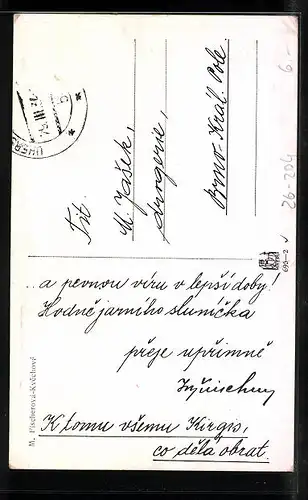 Tit.
M. Jašek,
drogerie,
Brno-Král. Pole
6.-
26-204
690-2
...a pevnou víru v lepší doby!
Hodně jarního sluníčka
přeje upřímně
K tomu všemu Kirgis,
co dělá obrat.
M. Fischerová-Kvěchová